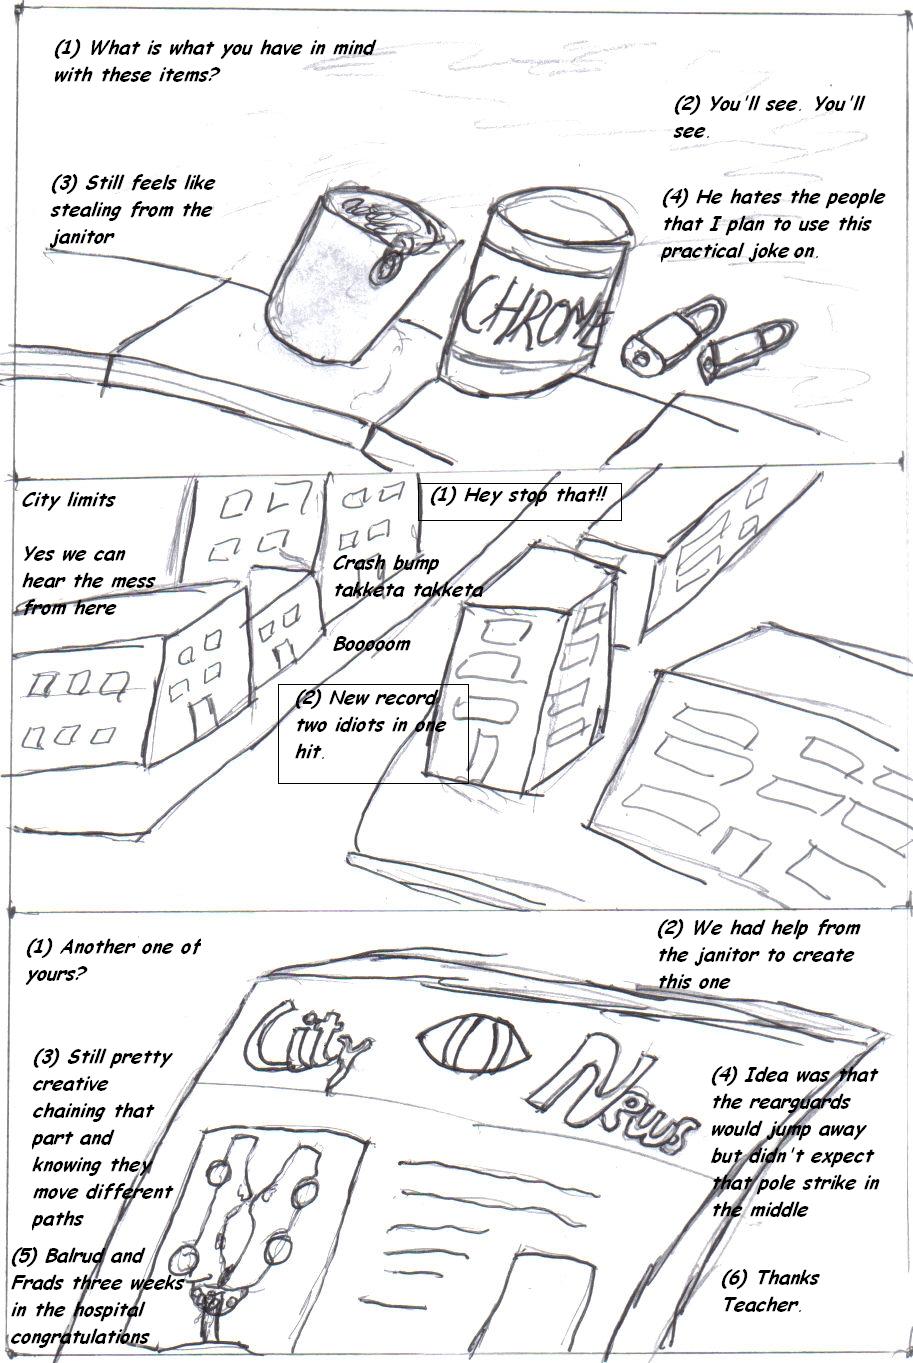 (1) What is what you have in mind
with these items?
(2) You'll see. You'll
see.
(3) Still feels like
stealing from the
janitor
(4) He hates the people
that I plan to use this
practical joke on.
CHROME
City limits
Yes we can
hear the mess
from here
(1) Hey stop that!!
Crash bump
takketa takketa
Booooom
(2) New record
two idiots in one
hit.
(1) Another one of
yours?
(2) We had help from
the janitor to create
this one
City News
(3) Still pretty
creative
chaining that
part and
knowing they
move different
paths
(4) Idea was that
the rearguards
would jump away
but didn't expect
that pole strike in
the middle
(5) Balrud and
Frads three weeks
in the hospital
congratulations
(6) Thanks
Teacher.